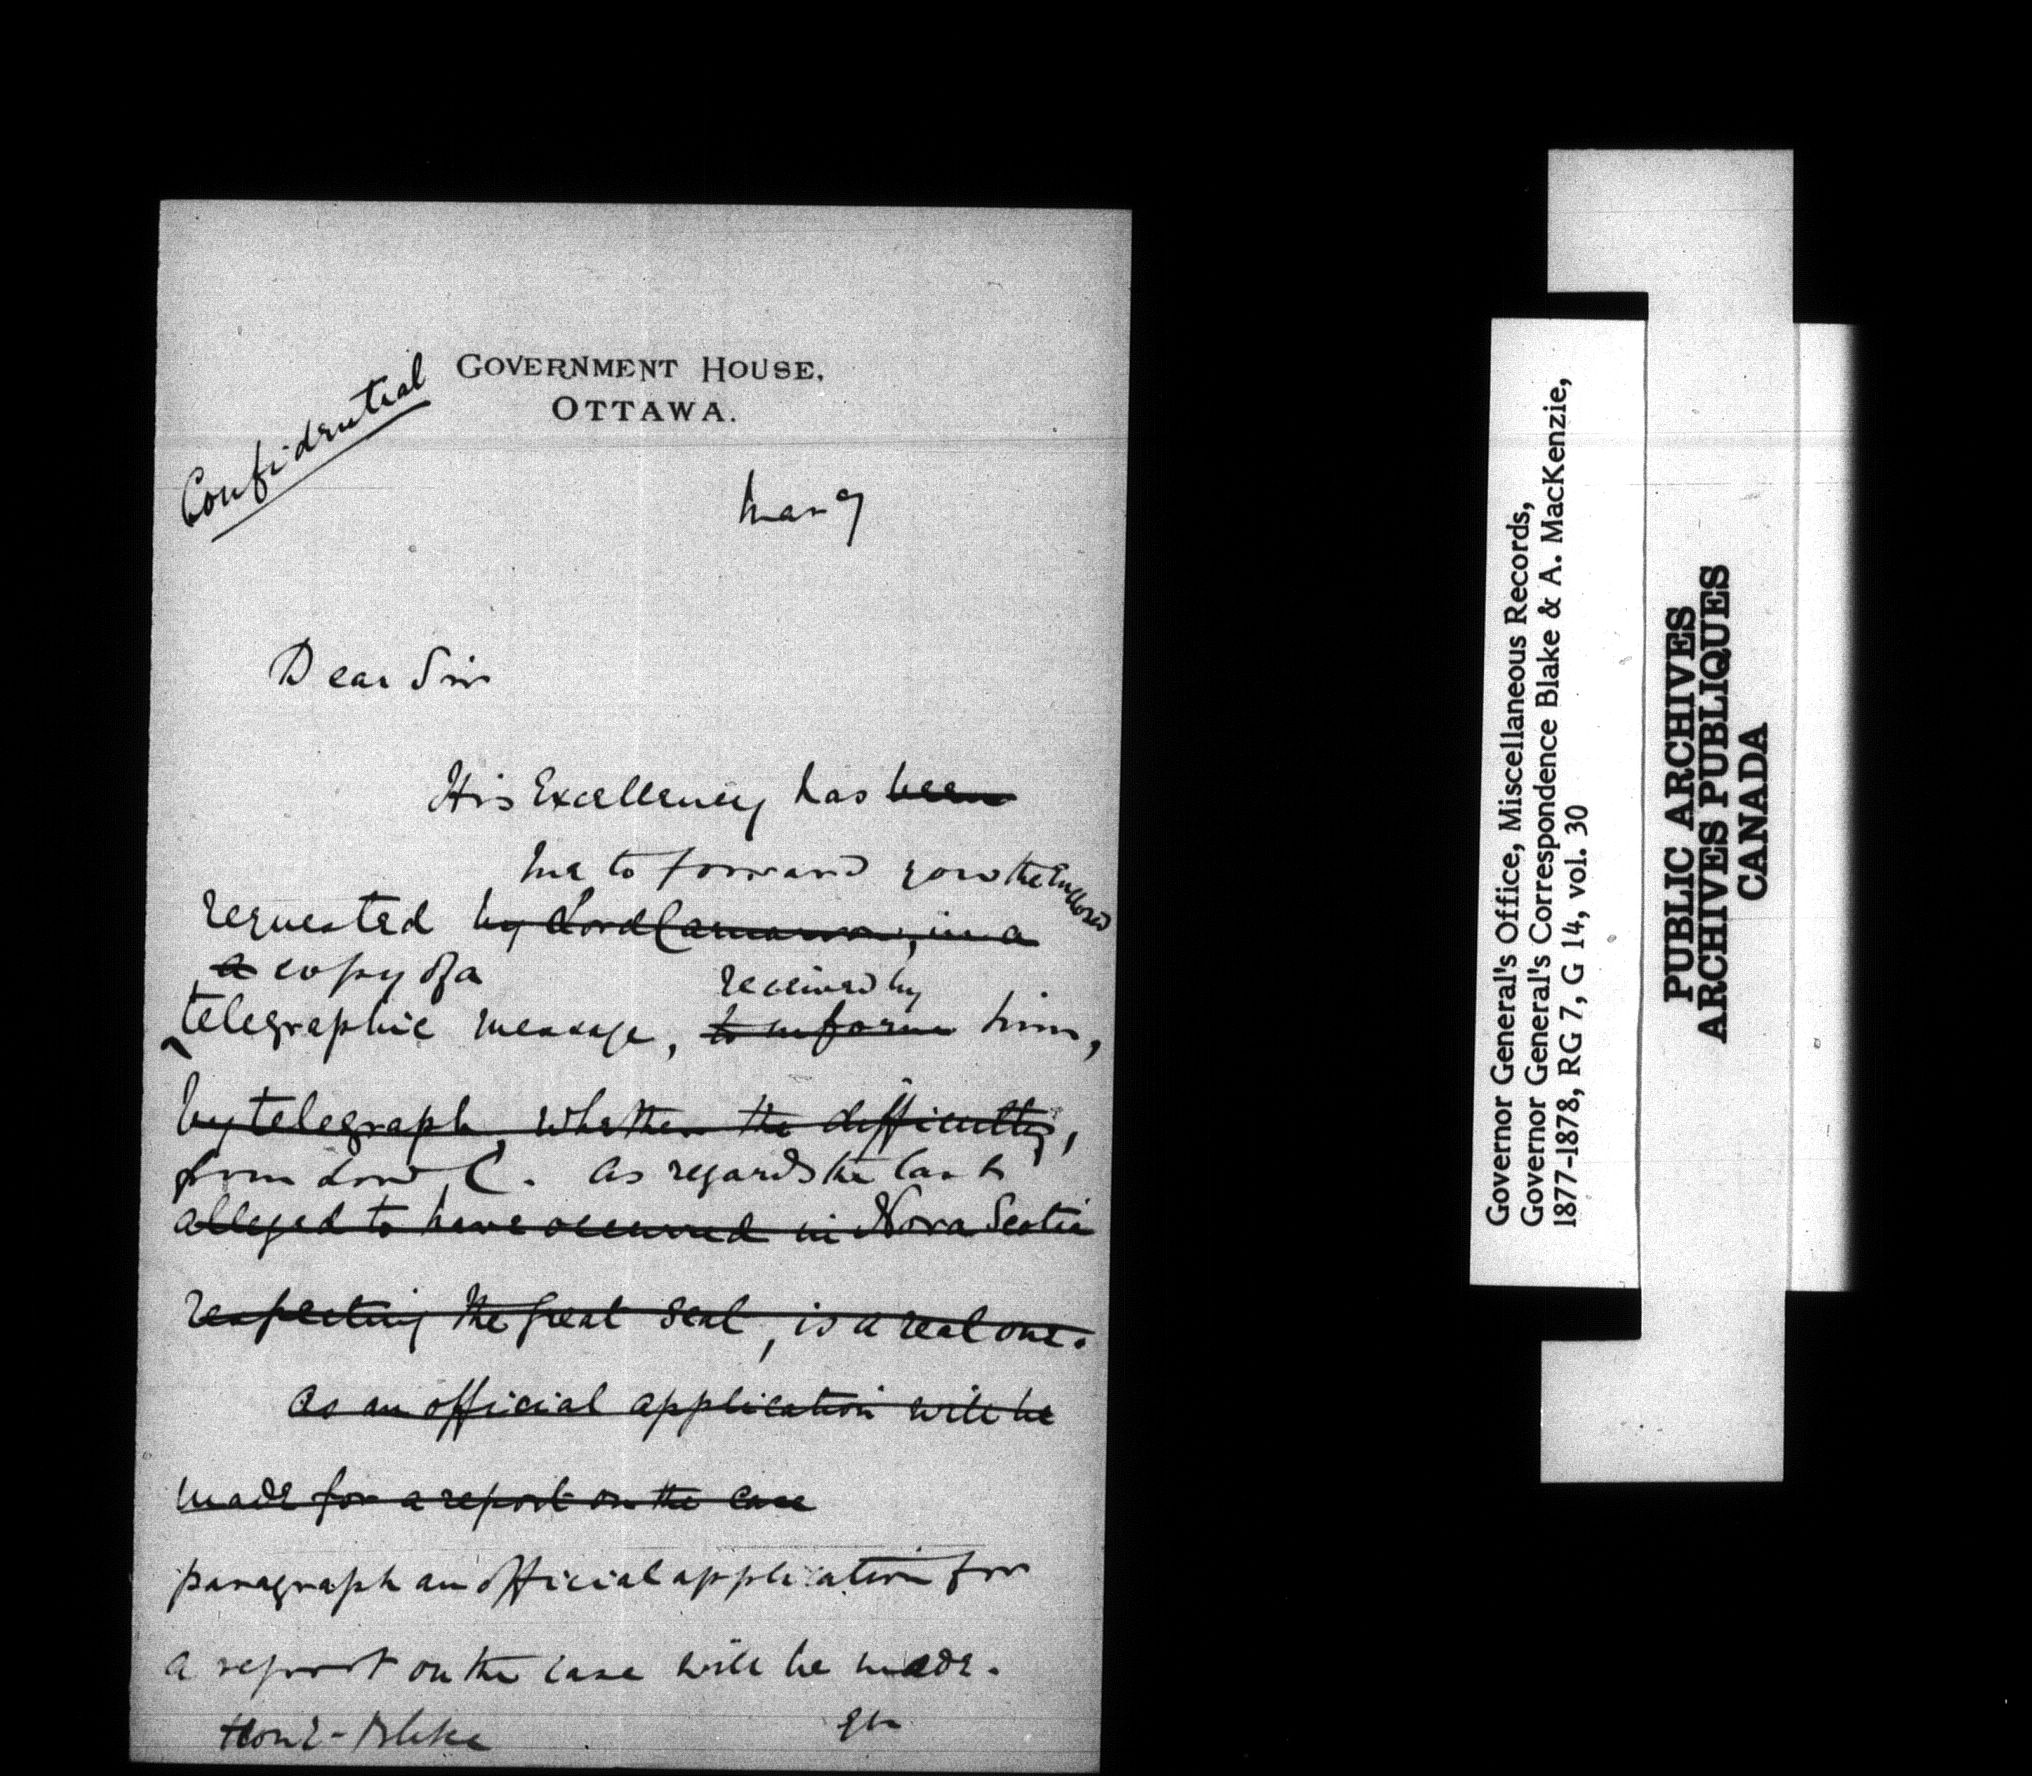 Confidential
GOVERNMENT HOUSE,
OTTAWA.
Mar 9
Dear Sir
His Excellency has been
me to forward you the Enclosed
requested by Lord Carnarvon, in a
a copy of a received by
telegraphic message, to inform him,
by telegraph, whether the difficulty,
from Lord C. As regards the last
alleged to have occurred in Nova Scotia
respecting the Great Seal, is a real one.
As an official application will be
made for a report on the case
paragraph an official application for
a report on the case will be made.
Honl. Blake
Governor General's Office, Miscellaneous Records,
Governor General's Correspondence Blake & A. MacKenzie,
1877-1878, RG 7, G 14, vol. 30
PUBLIC ARCHIVES
ARCHIVES PUBLIQUES
CANADA